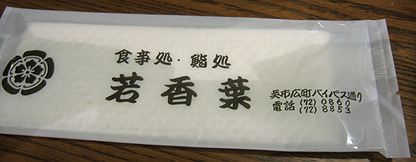 食事処・鮨処
若香葉
呉市広町バイパス通り
電話 (72) 0860
(72) 8853